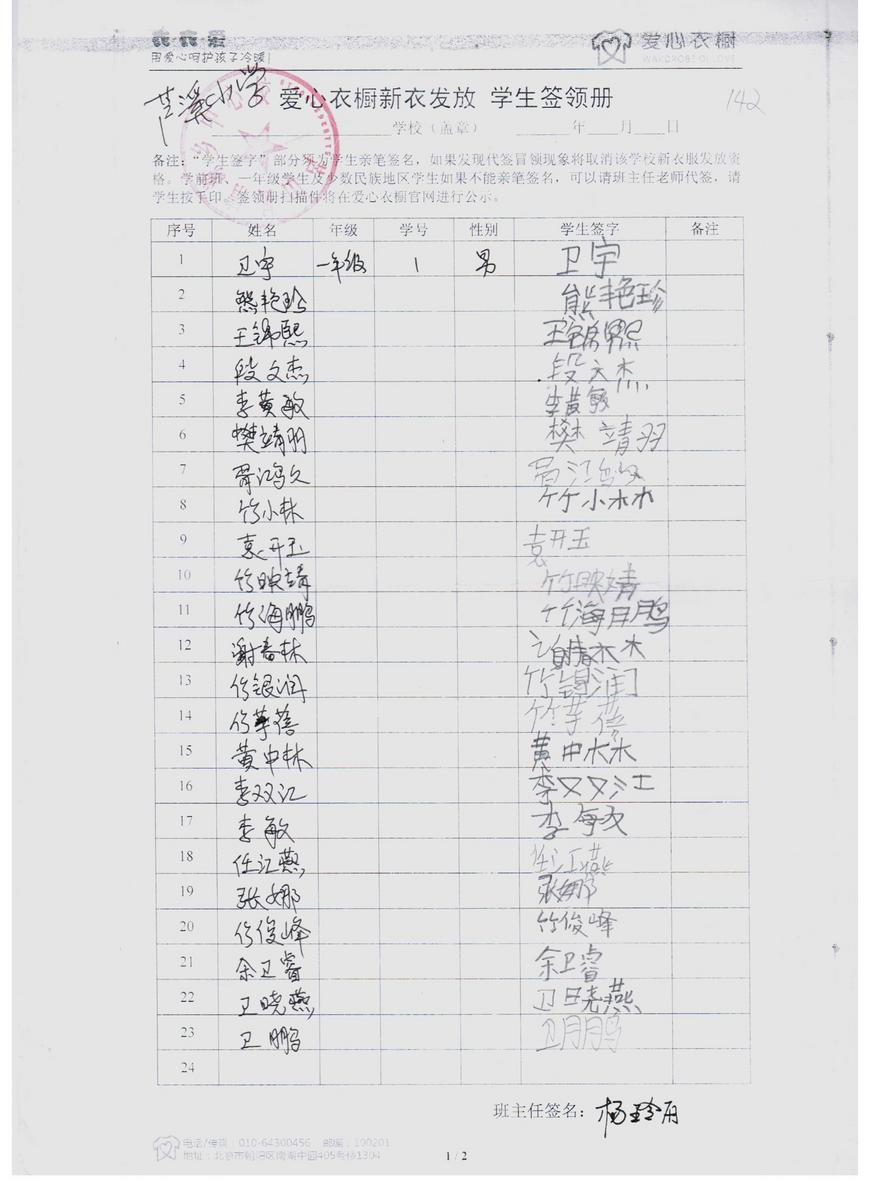 衣衣爱
用爱心呵护孩子冷暖
爱心衣橱
WARDROBE OF LOVE
芦溪小学
爱心衣橱新衣发放 学生签领册
142
学校（盖章） 年 月 日
备注："学生签字"部分须为学生亲笔签名，如果发现代签冒领现象将取消该学校新衣服发放资
格。学前班、一年级学生及少数民族地区学生如果不能亲笔签名，可以请班主任老师代签，请
学生按手印。签领册扫描件将在爱心衣橱官网进行公示。
序号 姓名 年级 学号 性别 学生签字 备注
1 卫宇 一年级 1 男 卫宇
2 熊艳珍 熊艳珍
3 王锦熙 王锦熙
4 段文杰 段文杰
5 李黄敏 李黄敏
6 樊靖羽 樊靖羽
7 胥鸿久 胥江鸿
8 竹小林 竹小林
9 袁开玉 袁开玉
10 竹映婧 竹映婧
11 竹海鹏 竹海鹏
12 谢春林 林
13 竹银润 竹银润
14 竹莩蓓 竹莩蓓
15 黄中林 黄中林
16 李双江 李双江
17 李敏 李敏
18 任江燕 任江燕
19 张娜 张娜
20 竹俊峰 竹俊峰
21 余卫睿 余卫睿
22 卫晓燕 卫晓燕
23 卫鹏 卫鹏
24
班主任签名：杨玲丹
电话/传真：010-64300456 邮编：100201
地址：北京市朝阳区南湖中园405号楼1304
1 / 2